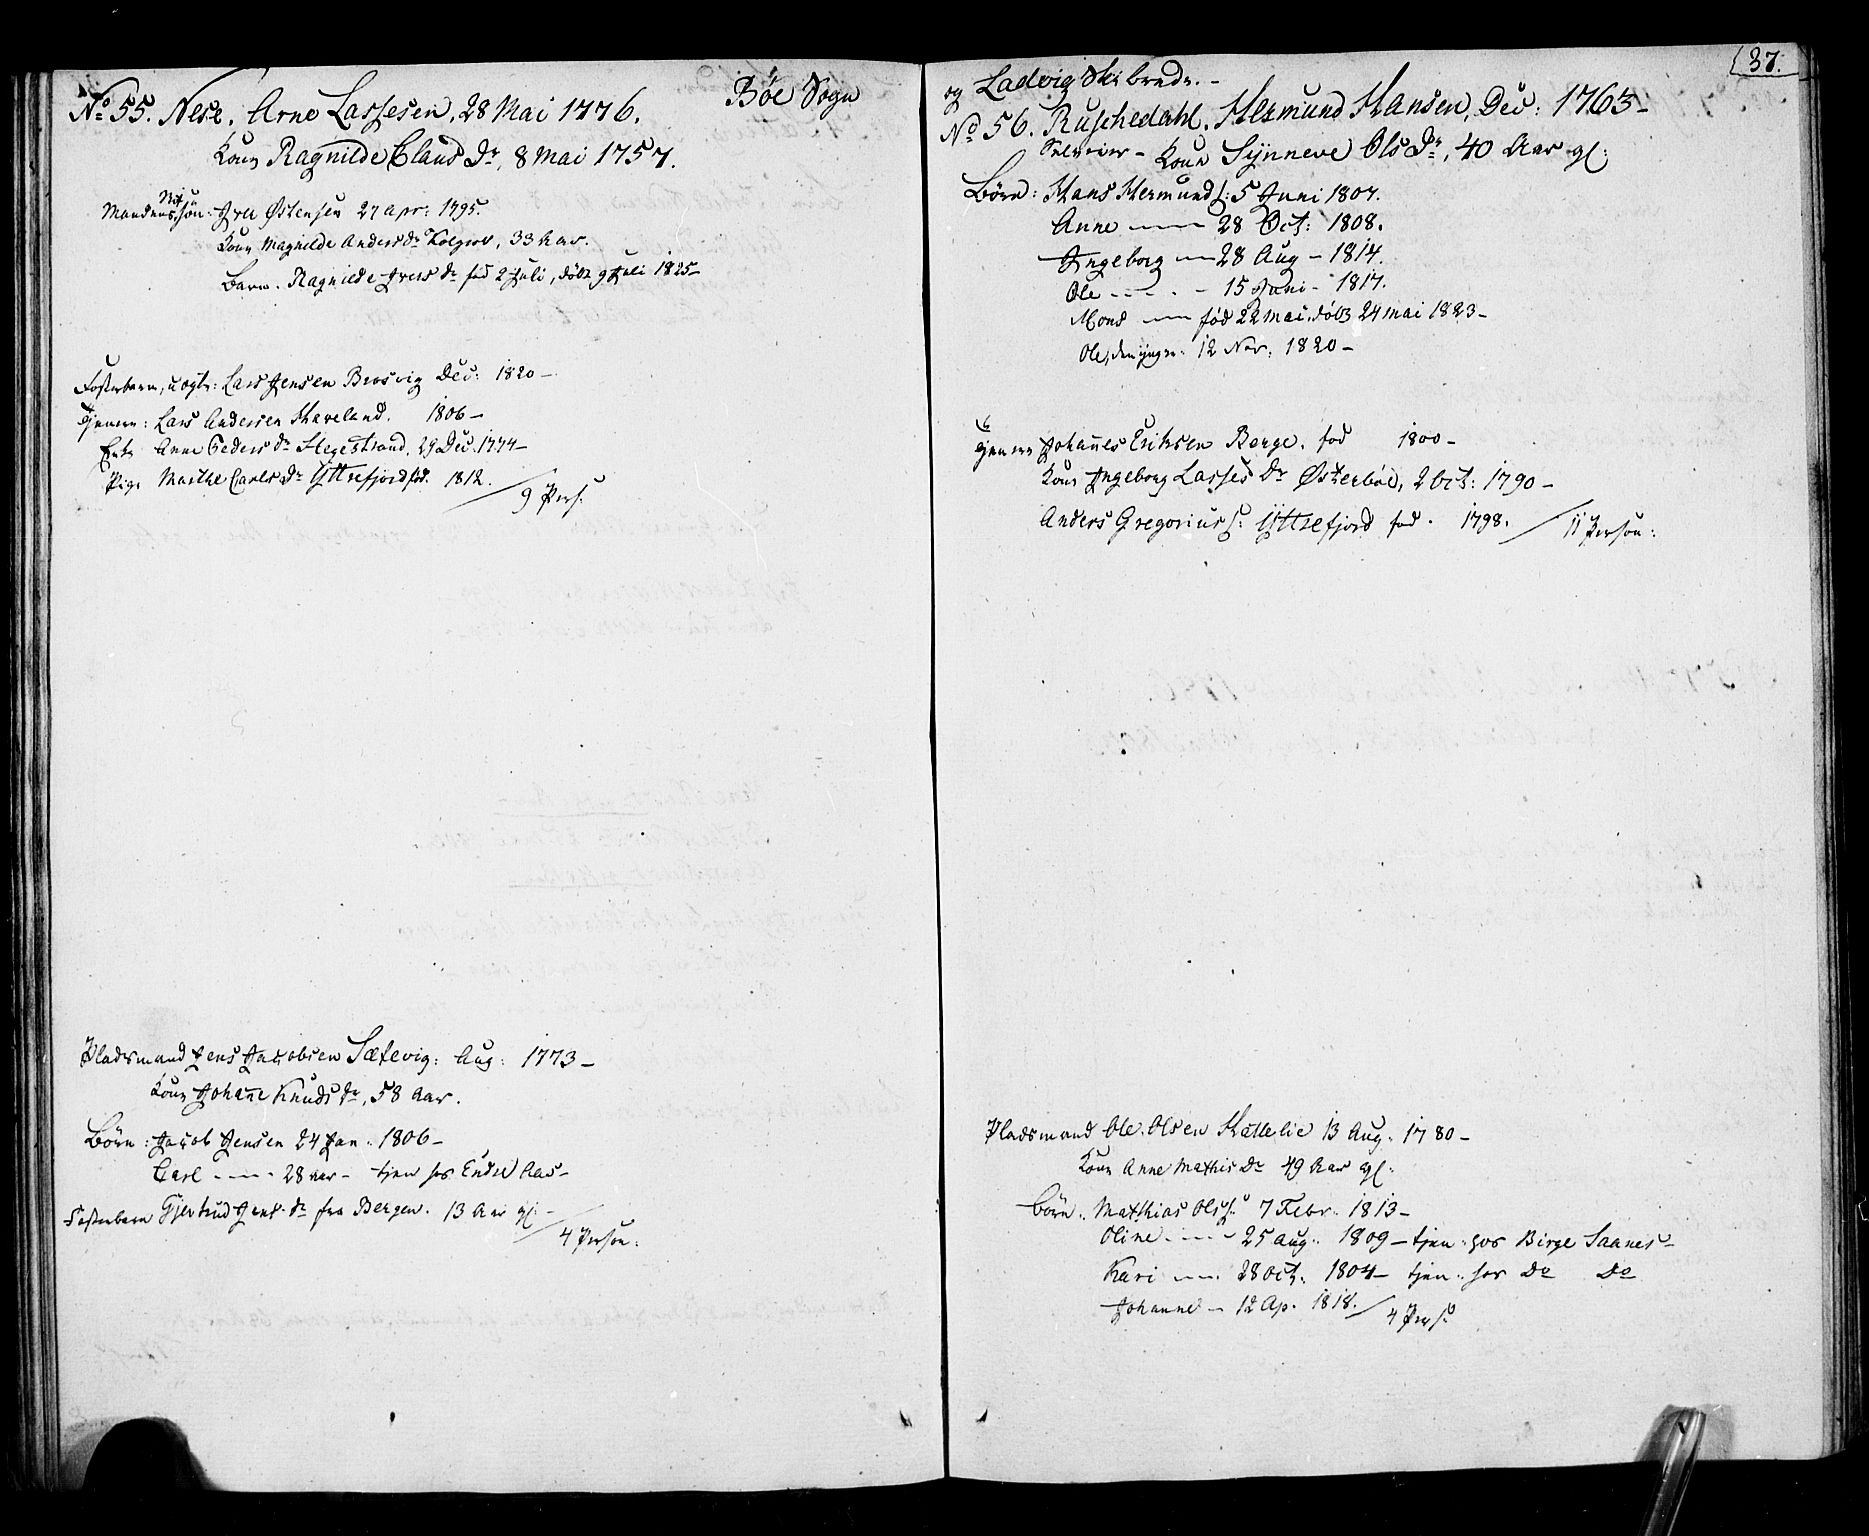 Böe Sogn
No 55. Nese. Arne Lassesen, 28 Mai 1776.
Kone Ragnilde Claus Dr, 8 Mai 1757.
Mandens søn: Iver Østensen 27 Apr: 1795.
Kone Magnilde Anders dr Kolgrov, 33 Aar.
Barn. Ragnilde Ivers dr fød 2 Juli, döbt 9 Juli 1825-
Fosterbarn, uægte: Lars Jensen Brosvig Dec: 1820-
Tjenere: Lars Andersen Haveland. 1806-
Enke Anne Peders dr Hegestrand, 29 Dec. 1774-
Pige Marthe Carls Dr Yttrefjord fød. 1812.
9 Pers:
Pladsmand Jens Jacobsen Sætevig: Aug: 1773-
Kone Johañe Knuds dr, 58 Aar.
Börn: Jacob Jensen 24 Jan. 1806-
Carl 28 aar- tjen hos Endre Aas-
Fosterbarn Gjertrud Jens dr fra Bergen. 13 Aar gl-
4 Person:
37.
og Ladvig Skibrede.-
No 56. Ruschedahl. Hermund Hansen, Dec: 1763-
Selveier- Kone Synneve Ols Dr, 40 Aar gl:
Börn: Hans Hermunds: 5 Juni 1807.
Anne 28 Oct: 1808.
Ingeborg 28 Aug- 1814.
Ole 15 Juni- 1817.
Mons fød 22 Mai, döbt 24 Mai 1823-
Ole, den yngre: 12 Nov: 1820-
Tjenere Johañes Eriksen Berge. fød 1800-
Kone Ingeborg Lasses Dr Østerböe, 2 Oct: 1790-
Anders Gregorius s: Yttrefjord fød. 1798.
11 Person:
Pladsmand Ole Olsen Hattelie 13 Aug. 1780-
Kone Anne Mathis Dr 49 Aar gl:
Börn. Mathias Ols s: 7 Febr. 1813-
Oline 25 Aug. 1809- tjen. hos Birge Saanes-
Kari 28 Oct. 1804- tjen. hos Do Do
Johanne- 12 Ap. 1818.
4 Pers: